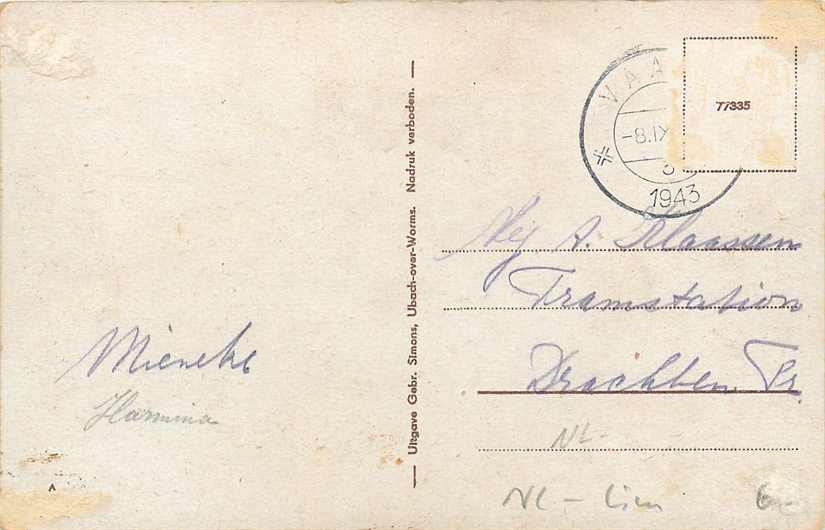 Mieneke
Harmina
Uitgave Gebr. Simons, Ubach-over-Worms. Nadruk verboden.
VAA
-8.IX
1943
77335
Mej A. Klaassen
Tramstation
Drachten Fr.
NL-
NL - Lim